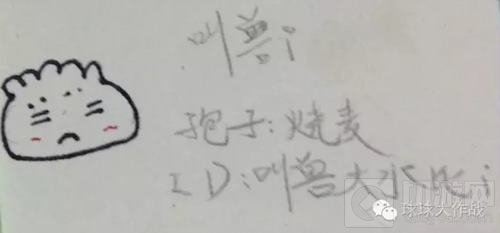 叫兽i
孢子:烧麦
ID:叫兽大水比i
球球大作战